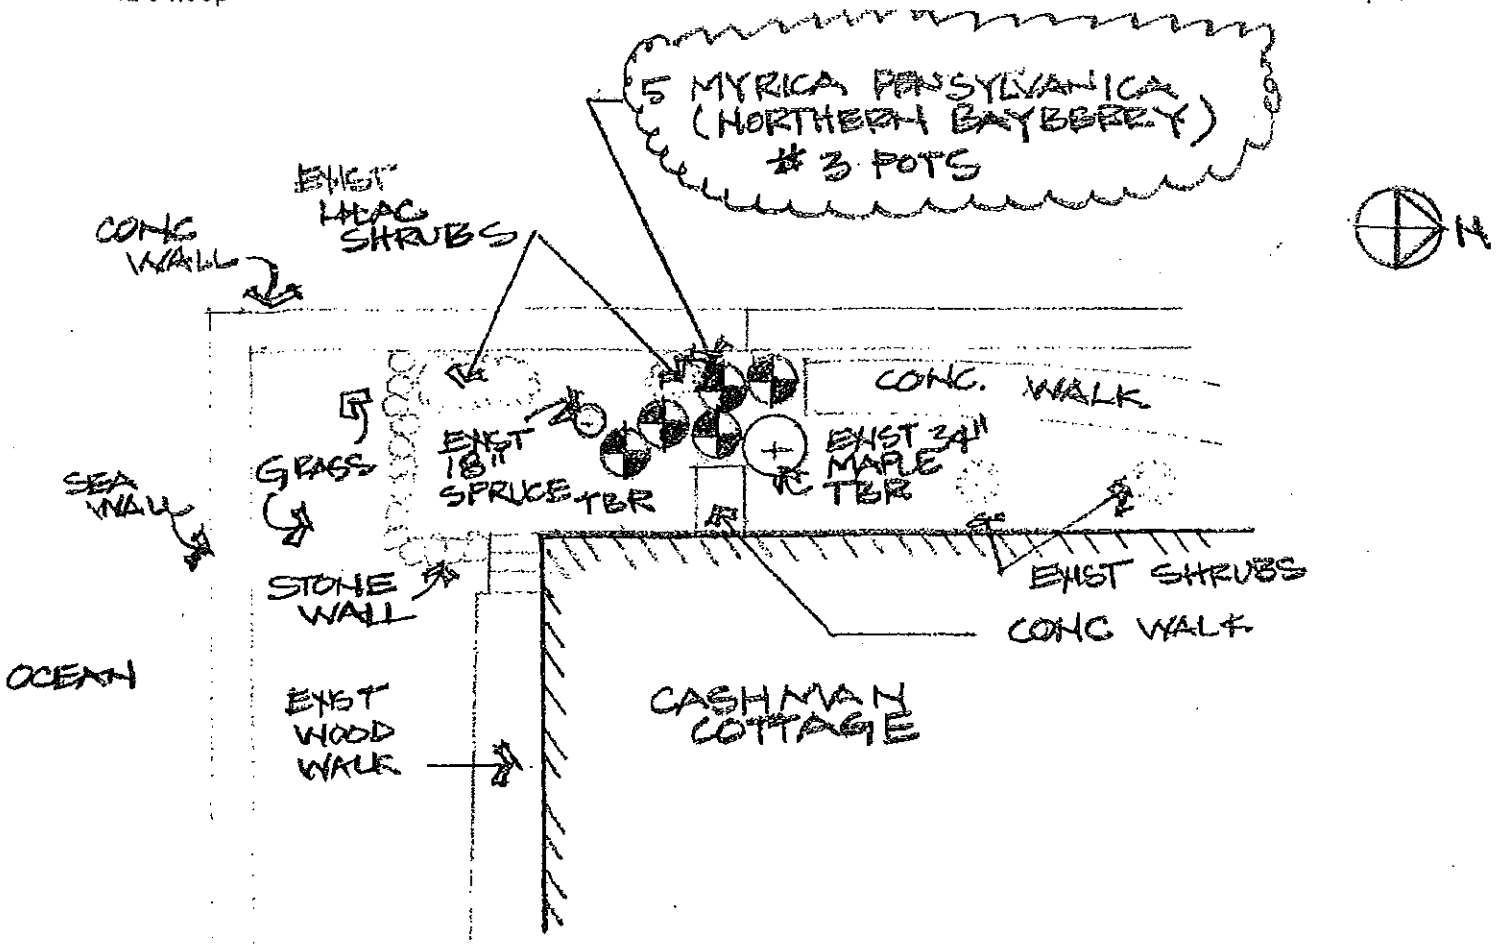 5 MYRICA PENSYLVANICA
(NORTHERN BAYBERRY)
#3 POTS
EXIST
LILAC
SHRUBS
CONC
WALL
N
CONC. WALK
GRASS
EXIST
18"
SPRUCE TBR
EXIST 34"
MAPLE
TBR
SEA
WALL
STONE
WALL
EXIST SHRUBS
CONC WALK
OCEAN
EXIST
WOOD
WALK
CASHMAN
COTTAGE